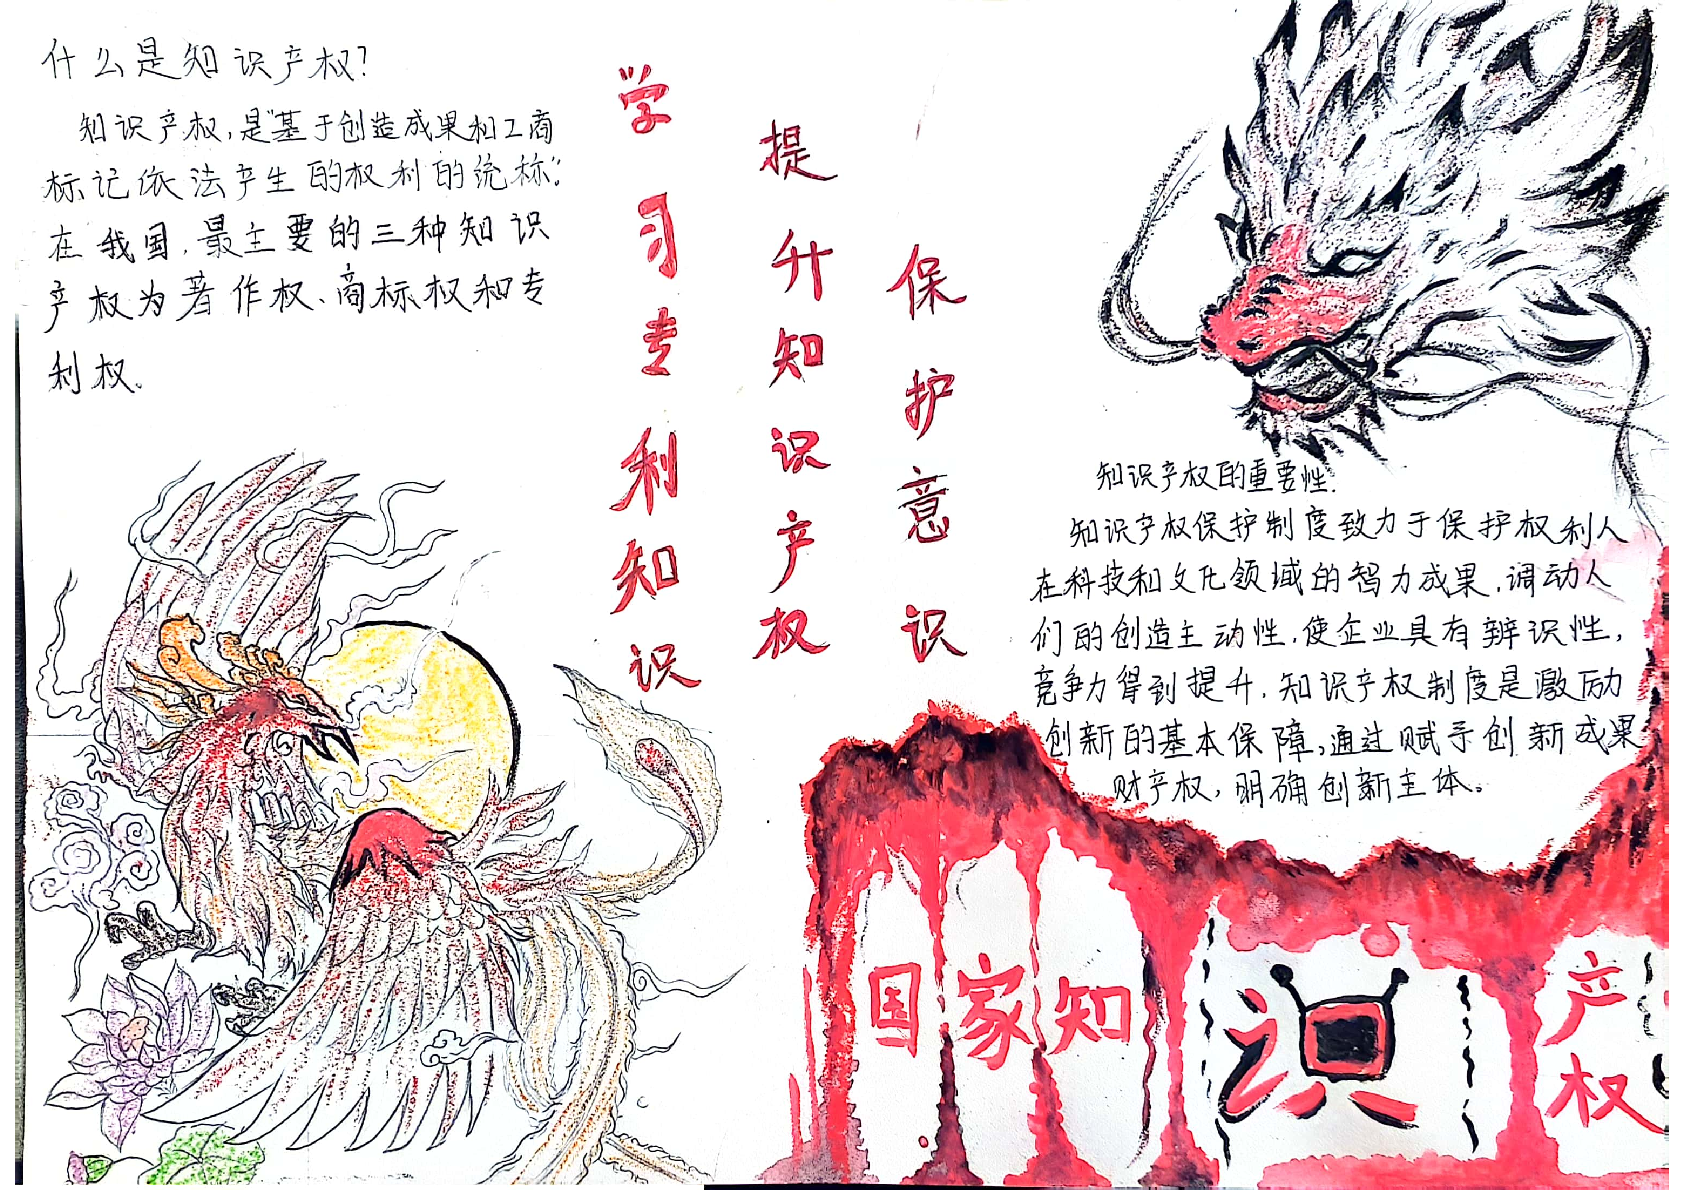 什么是知识产权？
知识产权，是“基于创造成果和工商
标记依法产生的权利的统称”。
在我国，最主要的三种知识
产权为著作权、商标权和专
利权。
学习专利知识
提升知识产权
保护意识
知识产权的重要性：
知识产权保护制度致力于保护权利人
在科技和文化领域的智力成果，调动人
们的创造主动性，使企业具有辨识性，
竞争力得到提升，知识产权制度是激励
创新的基本保障，通过赋予创新成果
财产权，明确创新主体。
国家知识产权